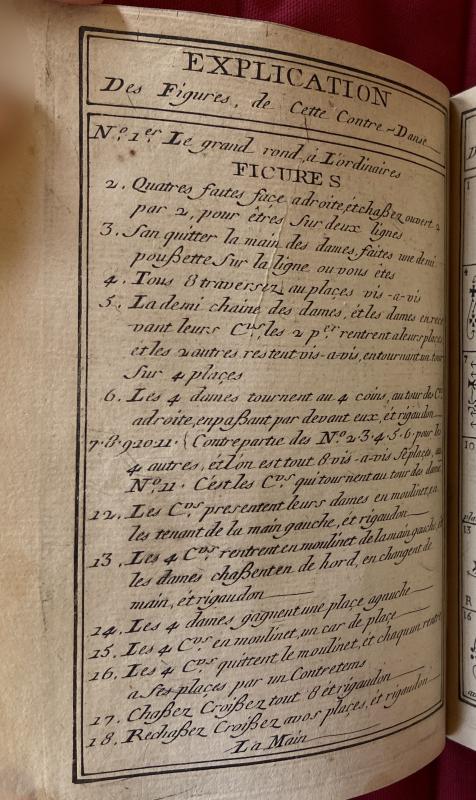 EXPLICATION
Des Figures, de Cette Contre-Danse
N.o 1.er Le grand rond, à L'ordinaires
FIGURES
2. Quatres faites face adroite, et chaßez ouvert 2
par 2, pour étres Sur deux lignes
3. San quitter la main des dames, faites une demi
poußette Sur la ligne ou vous etes
4. Tous 8 traversez au places vis-a-vis
5. La demi chaine des dames, ét les dames en rece
vant leurs C.ers les 2 p.er rentrent a leurs places
et les 2 autres restent vis-a-vis, en tournant un tour
Sur 4 places
6. Les 4 dames tournent au 4 coins, au tour des C.rs
adroite, en paßant par devant eux, ét rigaudon
7.8.9.10.11. { Contrepartie des N.o 2.3.4.5.6. pour les
4 autres, ét l'on est tout 8 vis-a-vis Sés places, au
N.o 11. C'est les C.ers qui tournent au tour des dames
12. Les C.ers presentent leurs dames en moulinet, en
les tenant de la main gauche, ét rigaudon
13. Les 4 C.ers rentrent en moulinet de la main gauche, ét
les dames chaßent en de hord, en changent de
main, ét rigaudon
14. Les 4 dames gagnent une plaçe agauche
15. Les 4 C.ers en moulinet, un car de plaçe
16. Les 4 C.ers quittent le moulinet, ét chaqun rentre
a Ses plaçes par un Contretems
17. Chaßez Croißez tout 8 ét rigaudon
18. Rechaßez Croißez avos plaçes, ét rigaudon
La Main